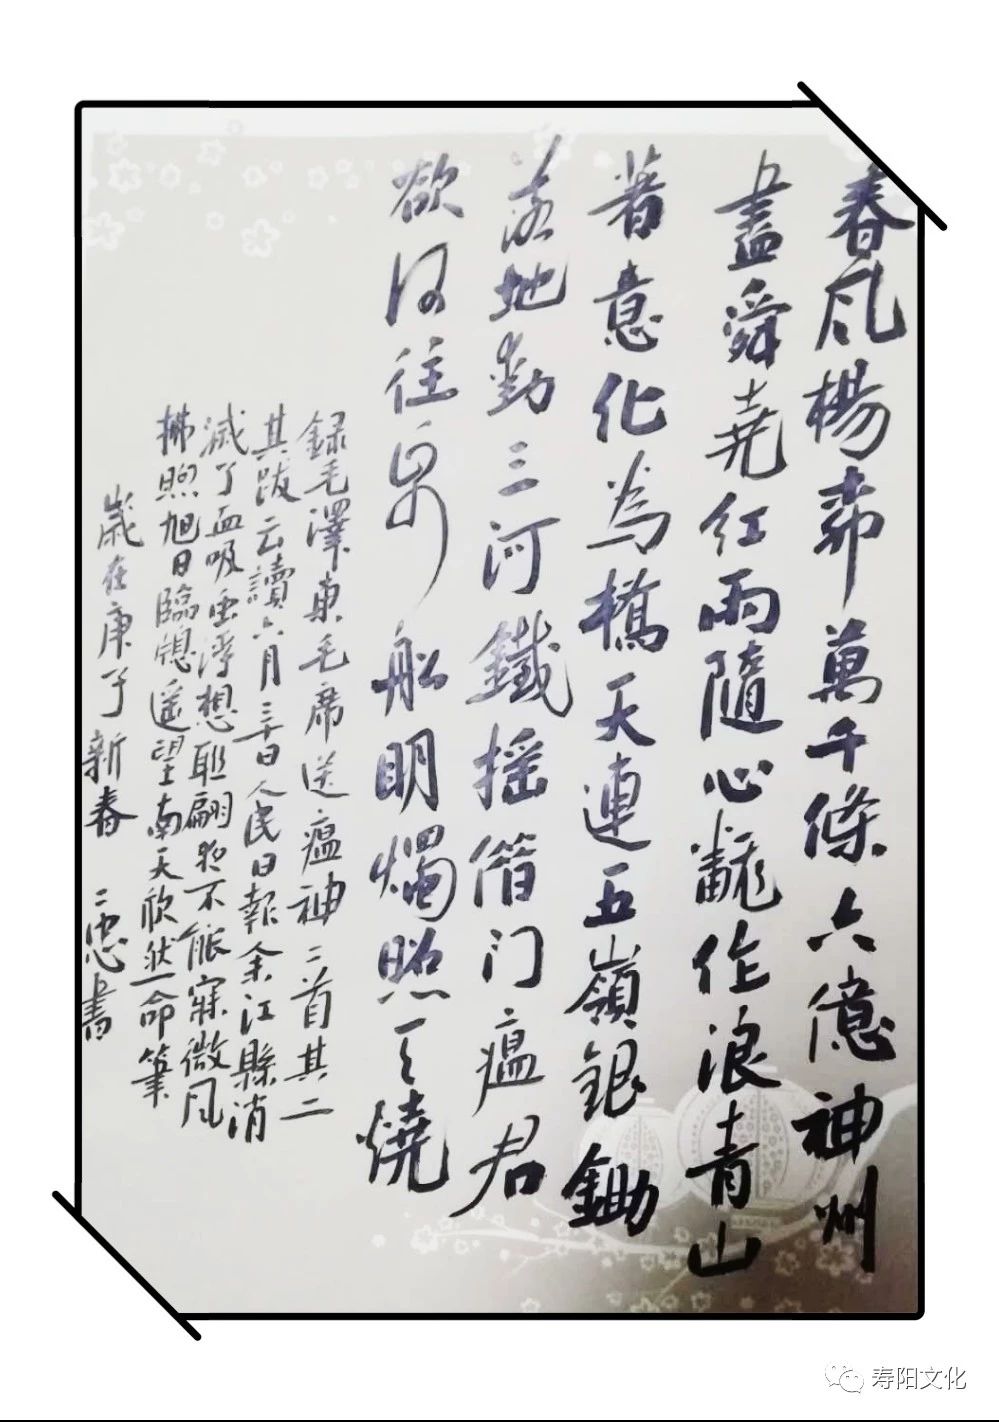 春风楊柳萬千條六億神州
盡舜堯红雨隨心飜作浪青山
著意化為橋天連五嶺銀鋤
落地動三河鐵摇借问瘟君
欲何往纸船明燭照天燒
録毛澤東毛席送瘟神二首其二
其跋云讀六月三十日人民日報余江縣消
滅了血吸虫浮想联翩夜不能寐微风
拂煦旭日臨窗遥望南天欣然命筆
歲在庚子新春 二忠書
寿阳文化